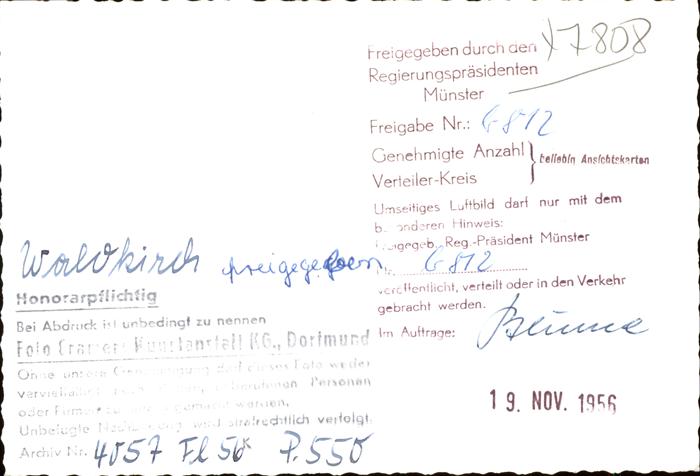 17808
Freigegeben durch den
Regierungspräsidenten
Münster
Freigabe Nr.: G 812
Genehmigte Anzahl
Verteiler-Kreis
beliebig Ansichtskarten
Umseitiges Luftbild darf nur mit dem
b. anderen Hinweis:
Freigegeb. Reg.-Präsident Münster
Nr. G 812
veröffentlicht, verteilt oder in den Verkehr
gebracht werden.
Im Auftrage:
19. NOV. 1956
Waldkirch freigegeben
Honorarpflichtig
Bei Abdruck ist unbedingt zu nennen
Foto Cramers Kunstanstalt KG., Dortmund
Ohne unsere Genehmigung darf dieses Foto weder
Personen
oder Firmen
werden.
Unbefugte wird strafrechtlich verfolgt.
Archiv Nr. 4057 Fl 56 P. 550